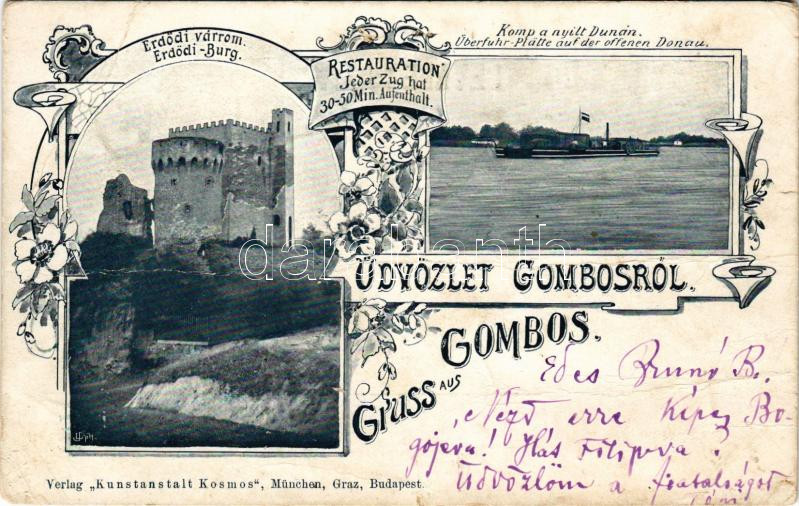 Erdődi várrom.
Erdödi-Burg.
RESTAURATION
Jeder Zug hat
30-50 Min. Aufenthalt.
Komp a nyilt Dunán.
Überfuhr-Plätte auf der offenen Donau.
darabanth
ÜDVÖZLET GOMBOSRÓL.
GRUSS AUS GOMBOS.
Edes Brunó B.
Nézd erre Bo-
! Hás Filipova?
Üdvözlöm a
Verlag „Kunstanstalt Kosmos", München, Graz, Budapest.